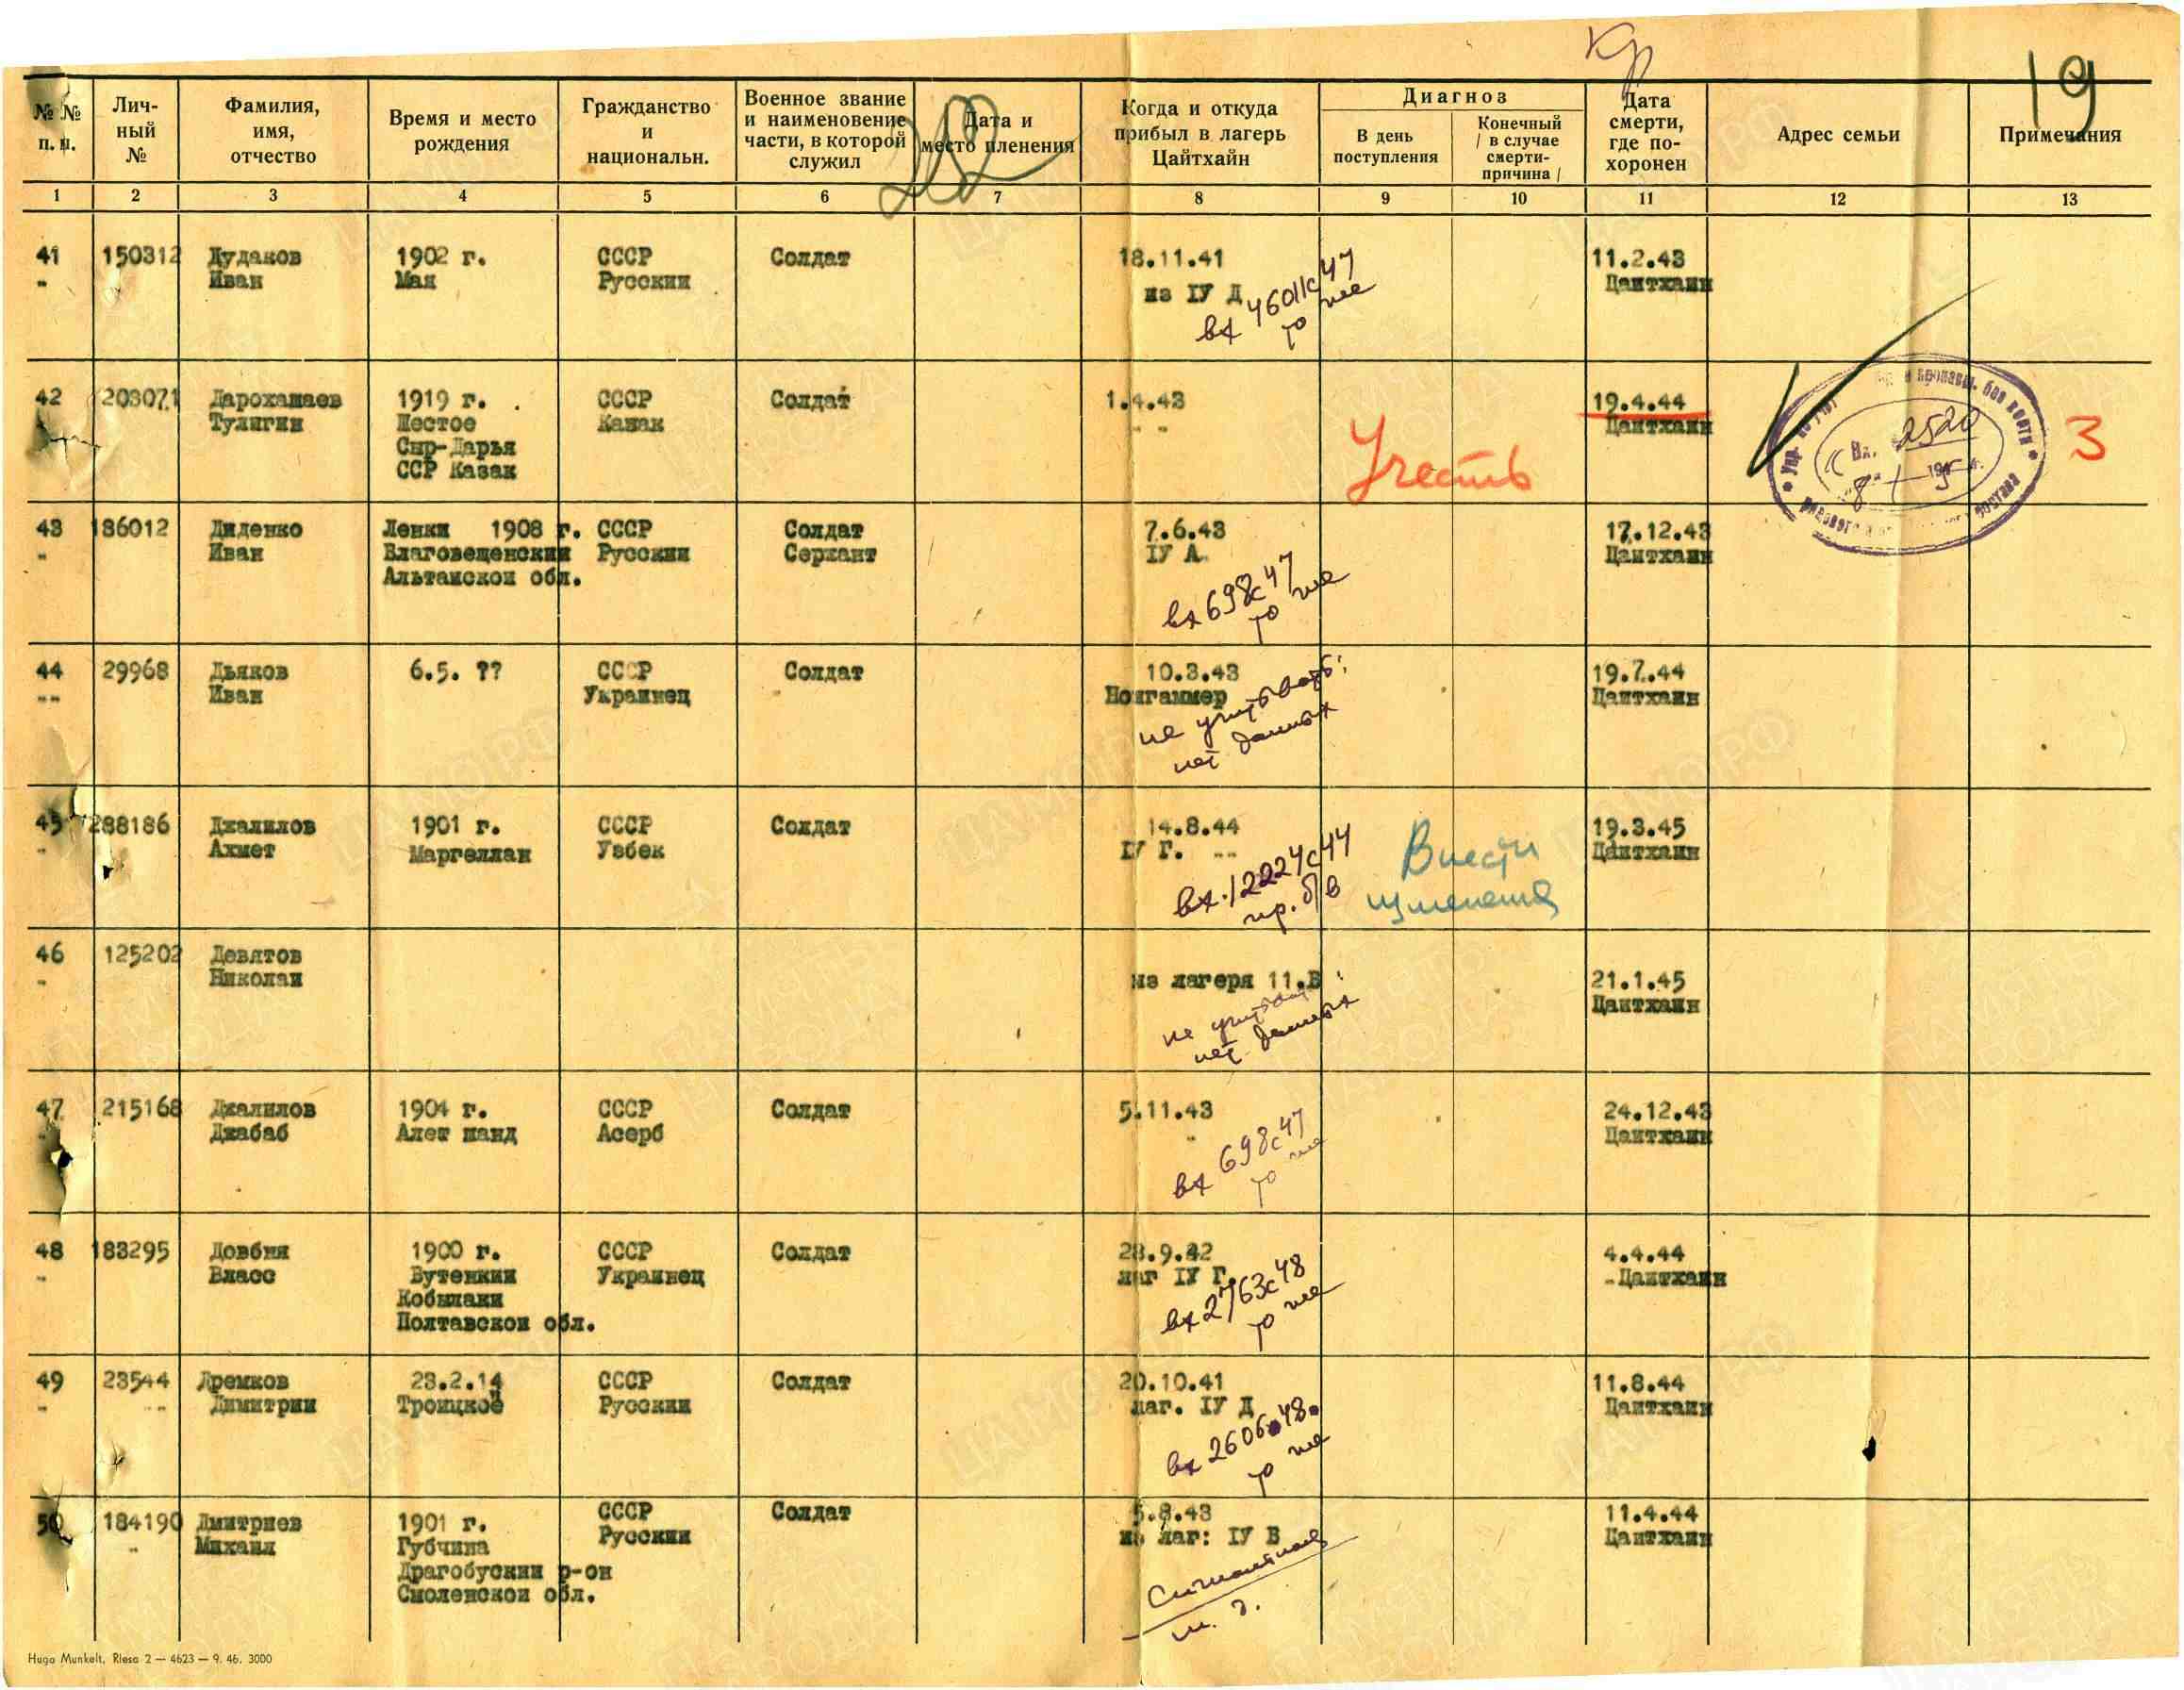 Кр
19
№ № п. п.
Лич-
ный
№
Фамилия,
имя,
отчество
Время и место
рождения
Гражданство
и
национальн.
Военное звание
и наименование
части, в которой
служил
Дата и
место пленения
Когда и откуда
прибыл в лагерь
Цайтхайн
Диагноз
В день
поступления
Конечный
/ в случае
смерти-
причина /
Дата
смерти,
где по-
хоронен
Адрес семьи
Примечания
1 2 3 4 5 6 7 8 9 10 11 12 13
41 150312 Дудаков 1902 г. СССР Солдат 18.11.41 11.2.43
" Иван Мая Русский из IУ Д Цаитхаин
вх 46011с47
то же
42 203071 Дарохашаев 1919 г. СССР Солдат 1.4.43 19.4.44
Тулигин Пестое Казак " " Цаитхаин
Сыр-Дарья
ССР Казак
Учесть
Вх. 2520
3
43 186012 Диденко Ленки 1908 г. СССР Солдат 7.6.43 17.12.43
" Иван Благовещенскии Русскии Сержант IУ А Цаитхаин
Альтаискои обл.
вх 698с47
то же
44 29968 Дьяков 6.5. ?? СССР Солдат 10.3.43 19.7.44
"" Иван Украинец Ноигаммер Цаитхаин
не учитывать:
нет данных
45 288186 Джалилов 1901 г. СССР Солдат 14.8.44 19.3.45
" Ахмет Маргеллан Узбек IУ Г. "" Цаитхаин
вх.12224с44
пр. б/в
Внести
изменения
46 125202 Девятов
" Николаи из лагеря 11.В 21.1.45
Цаитхаин
не учитывать
нет данных
47 215168 Джалилов 1904 г. СССР Солдат 5.11.43 24.12.43
" Джабаб Алет шанд Асерб " Цаитхаин
вх 698с47
то же
48 183295 Довбня 1900 г. СССР Солдат 28.9.42 4.4.44
" Власс Бутенкии Украинец лаг IУ Г. Цаитхаин
Кобилаки
Полтавскои обл.
вх 2763с48
то же
49 23544 Дремков 23.2.14 СССР Солдат 20.10.41 11.8.44
" "" Димитрии Троицкое Русскии лаг. IУ Д Цаитхаин
вх 2606с48
то же
50 184190 Дмитриев 1901 г. СССР Солдат 5.8.43 11.4.44
" Михаил Губчина Русскии из лаг: IУ В Цаитхаин
Драгобускии р-он
Смоленскои обл.
Hugo Munkelt, Riesa 2 — 4623 — 9. 46. 3000